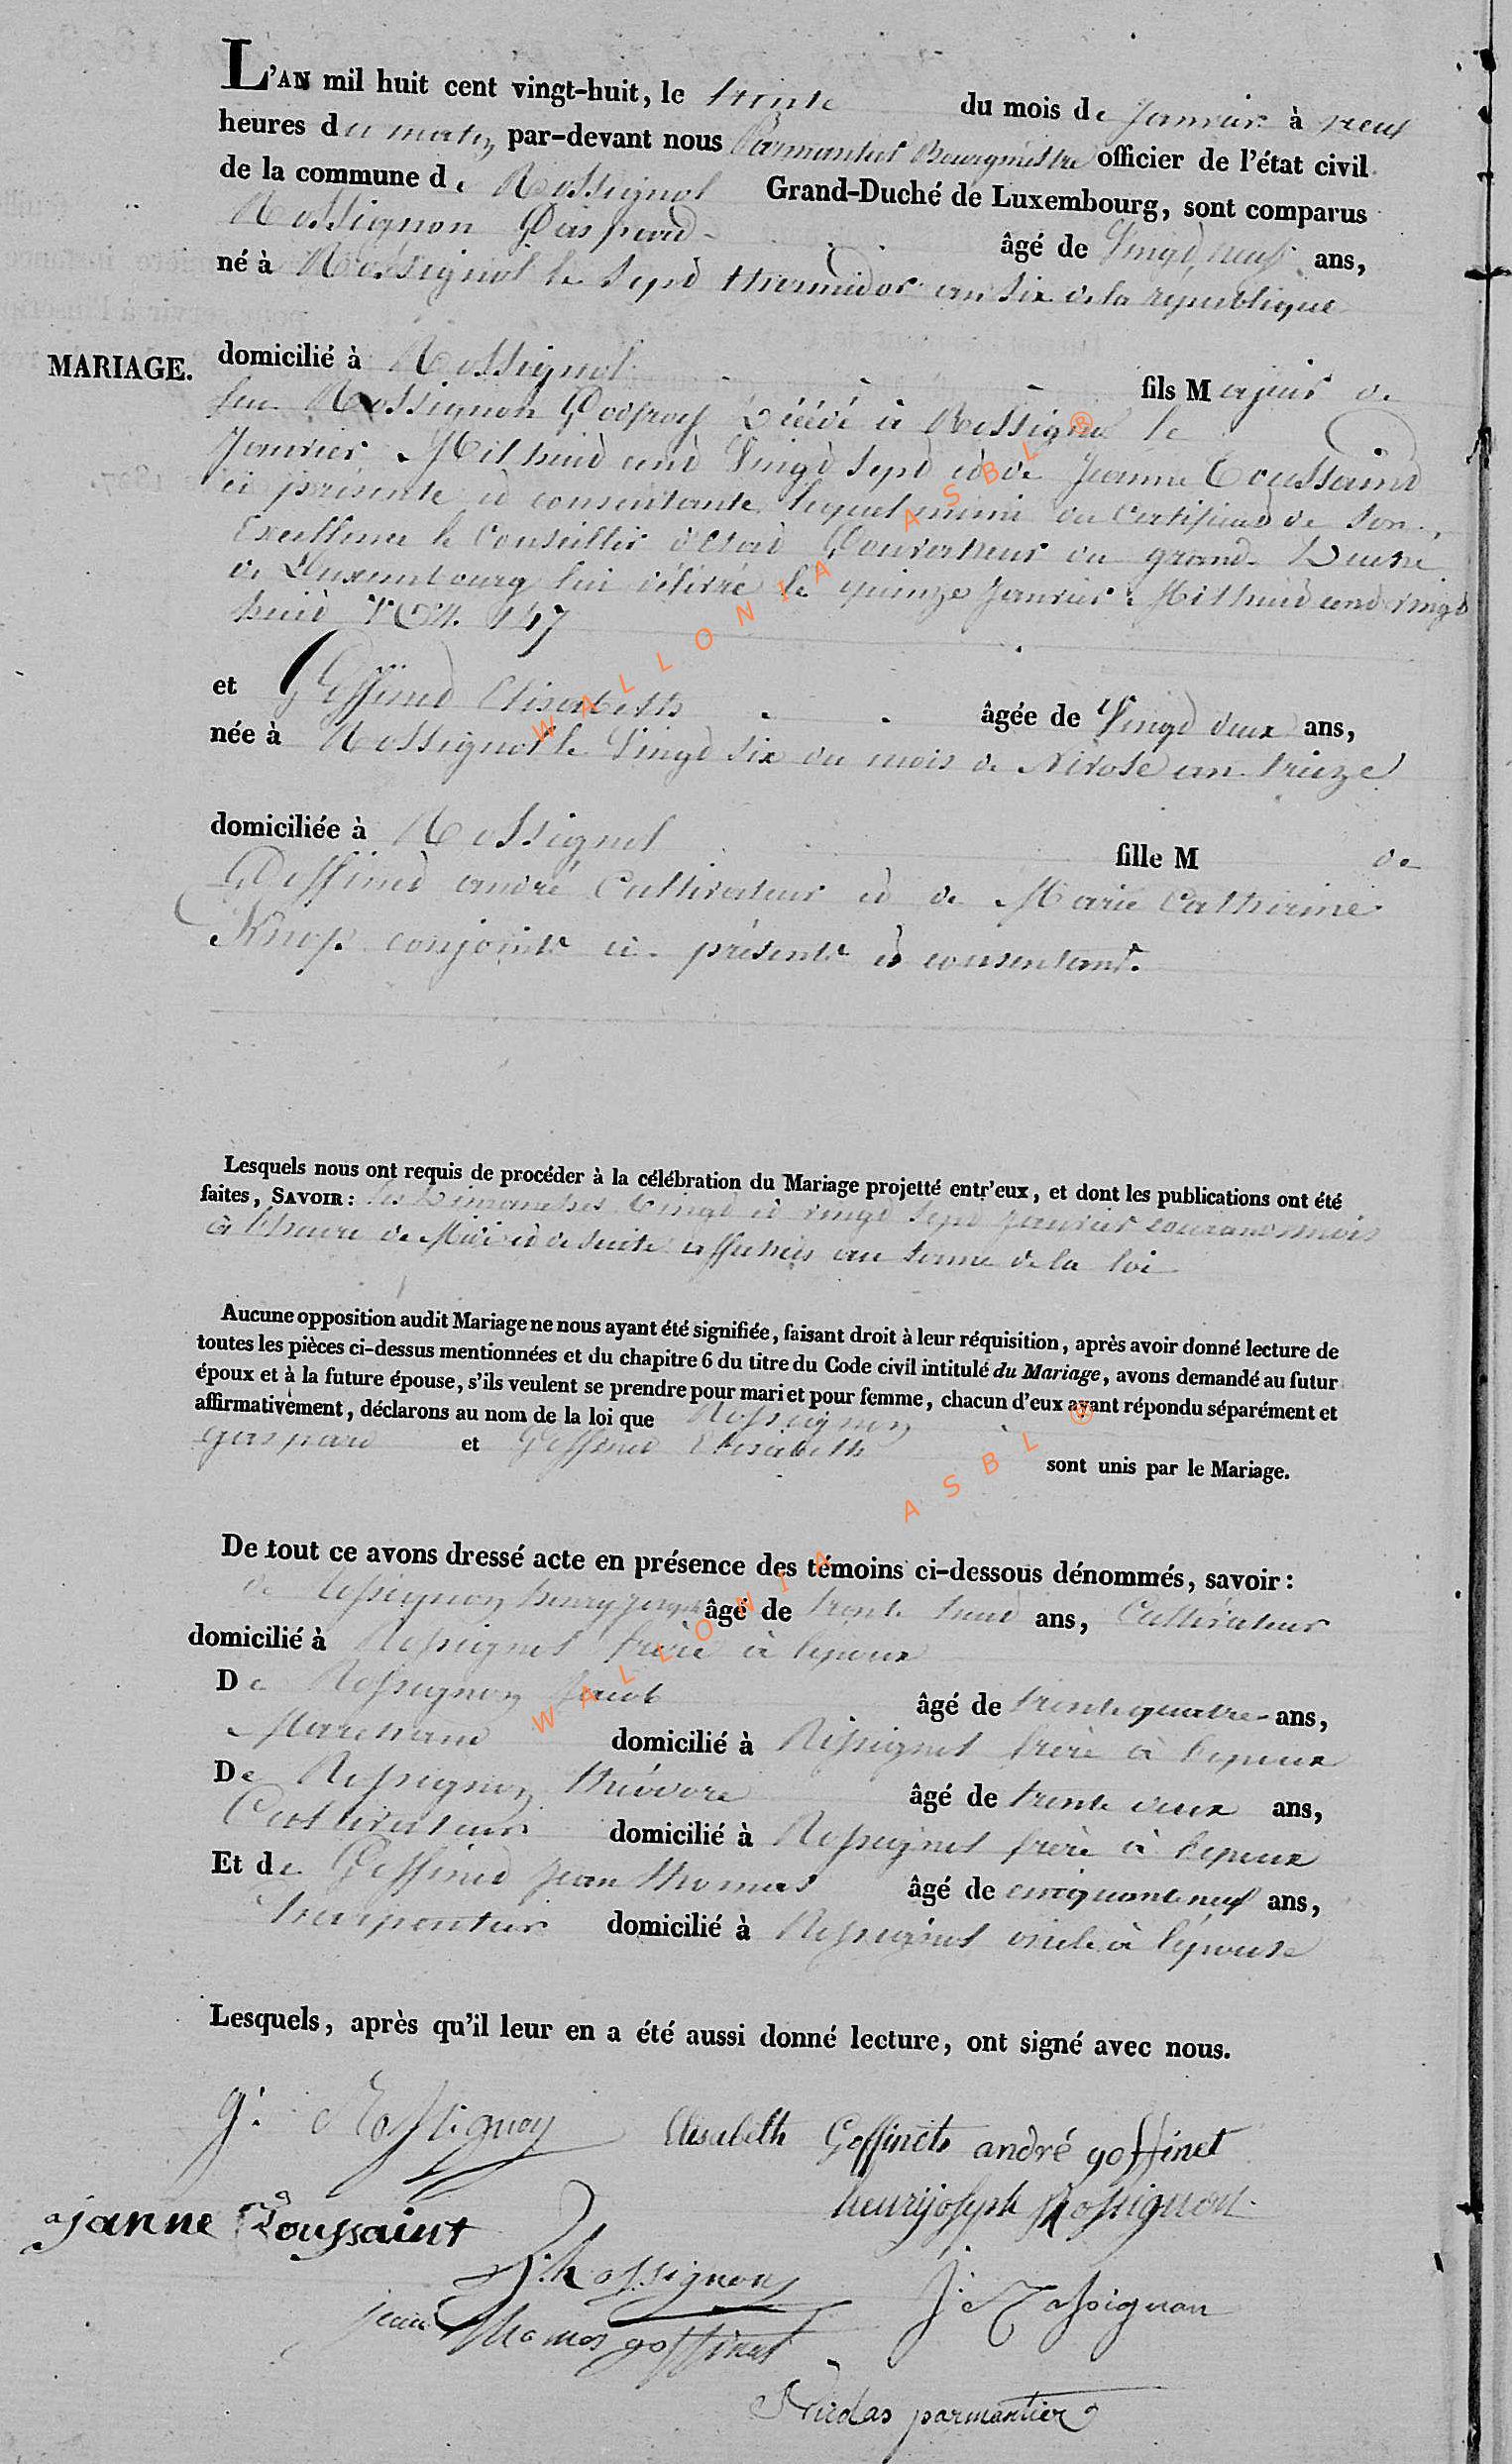 L'AN mil huit cent vingt-huit, le trente du mois de Janvier à neuf
heures du matin par-devant nous Parmantier Bourgmestre officier de l'état civil
de la commune de Rossignol Grand-Duché de Luxembourg, sont comparus
Rossignon Gaspard âgé de Vingt neuf ans,
né à Rossignol le sept thermidor an six de la republique
MARIAGE.
domicilié à Rossignol fils Majeur de
feu Rossignon Godfroy Décédé à Rossignol le
Janvier Mil huit cent Vingt sept et de Jeanne Toussaint
ci présente et consentante lequel muni du Certificat de Son
Excellence le Conseiller d'Etat Gouverneur du grand Duché
de Luxembourg lui délivré le quinze Janvier Mil huit cent vingt
huit 147
et Goffinet Elisabeth âgée de Vingt deux ans,
née à Rossignol le Vingt six du mois de Nivose an treize
domiciliée à Rossignol fille M de
Goffinet andré Cultivateur et de Marie Catherine
conjoints ci présents et consentant.
Lesquels nous ont requis de procéder à la célébration du Mariage projetté entr'eux, et dont les publications ont été
faites, SAVOIR: les Dimanches Vingt et vingt sept janvier courant mois
à l'heure de Midi et de suite affichés au terme de la loi
Aucune opposition audit Mariage ne nous ayant été signifiée, faisant droit à leur réquisition, après avoir donné lecture de
toutes les pièces ci-dessus mentionnées et du chapitre 6 du titre du Code civil intitulé du Mariage, avons demandé au futur
époux et à la future épouse, s'ils veulent se prendre pour mari et pour femme, chacun d'eux ayant répondu séparément et
affirmativement, déclarons au nom de la loi que Rossignon
gaspard et Goffinet Elisabeth
sont unis par le Mariage.
De tout ce avons dressé acte en présence des témoins ci-dessous dénommés, savoir:
de Rossignon henry joseph âgé de trente huit ans, Cultivateur
domicilié à Rossignol frère à l'epoux
De Rossignon Jacob âgé de trente quatre ans,
Marchand domicilié à Rossignol frère à l'epoux
De Rossignon théodore âgé de trente deux ans,
Cultivateur domicilié à Rossignol frère à l'epoux
Et de Goffinet jean thomas âgé de cinquante neuf ans,
charpentier domicilié à Rossignol oncle à l'épouse
Lesquels, après qu'il leur en a été aussi donné lecture, ont signé avec nous.
g: Rossignon Elisabeth Goffinet andré goffinet
henrijoseph Rossignon
janne Toussaint
Rossignon J: Rossignon
jean Thomas goffinet
Nicolas parmantier
WALLONIA ASBL ®
WALLONIA ASBL ®